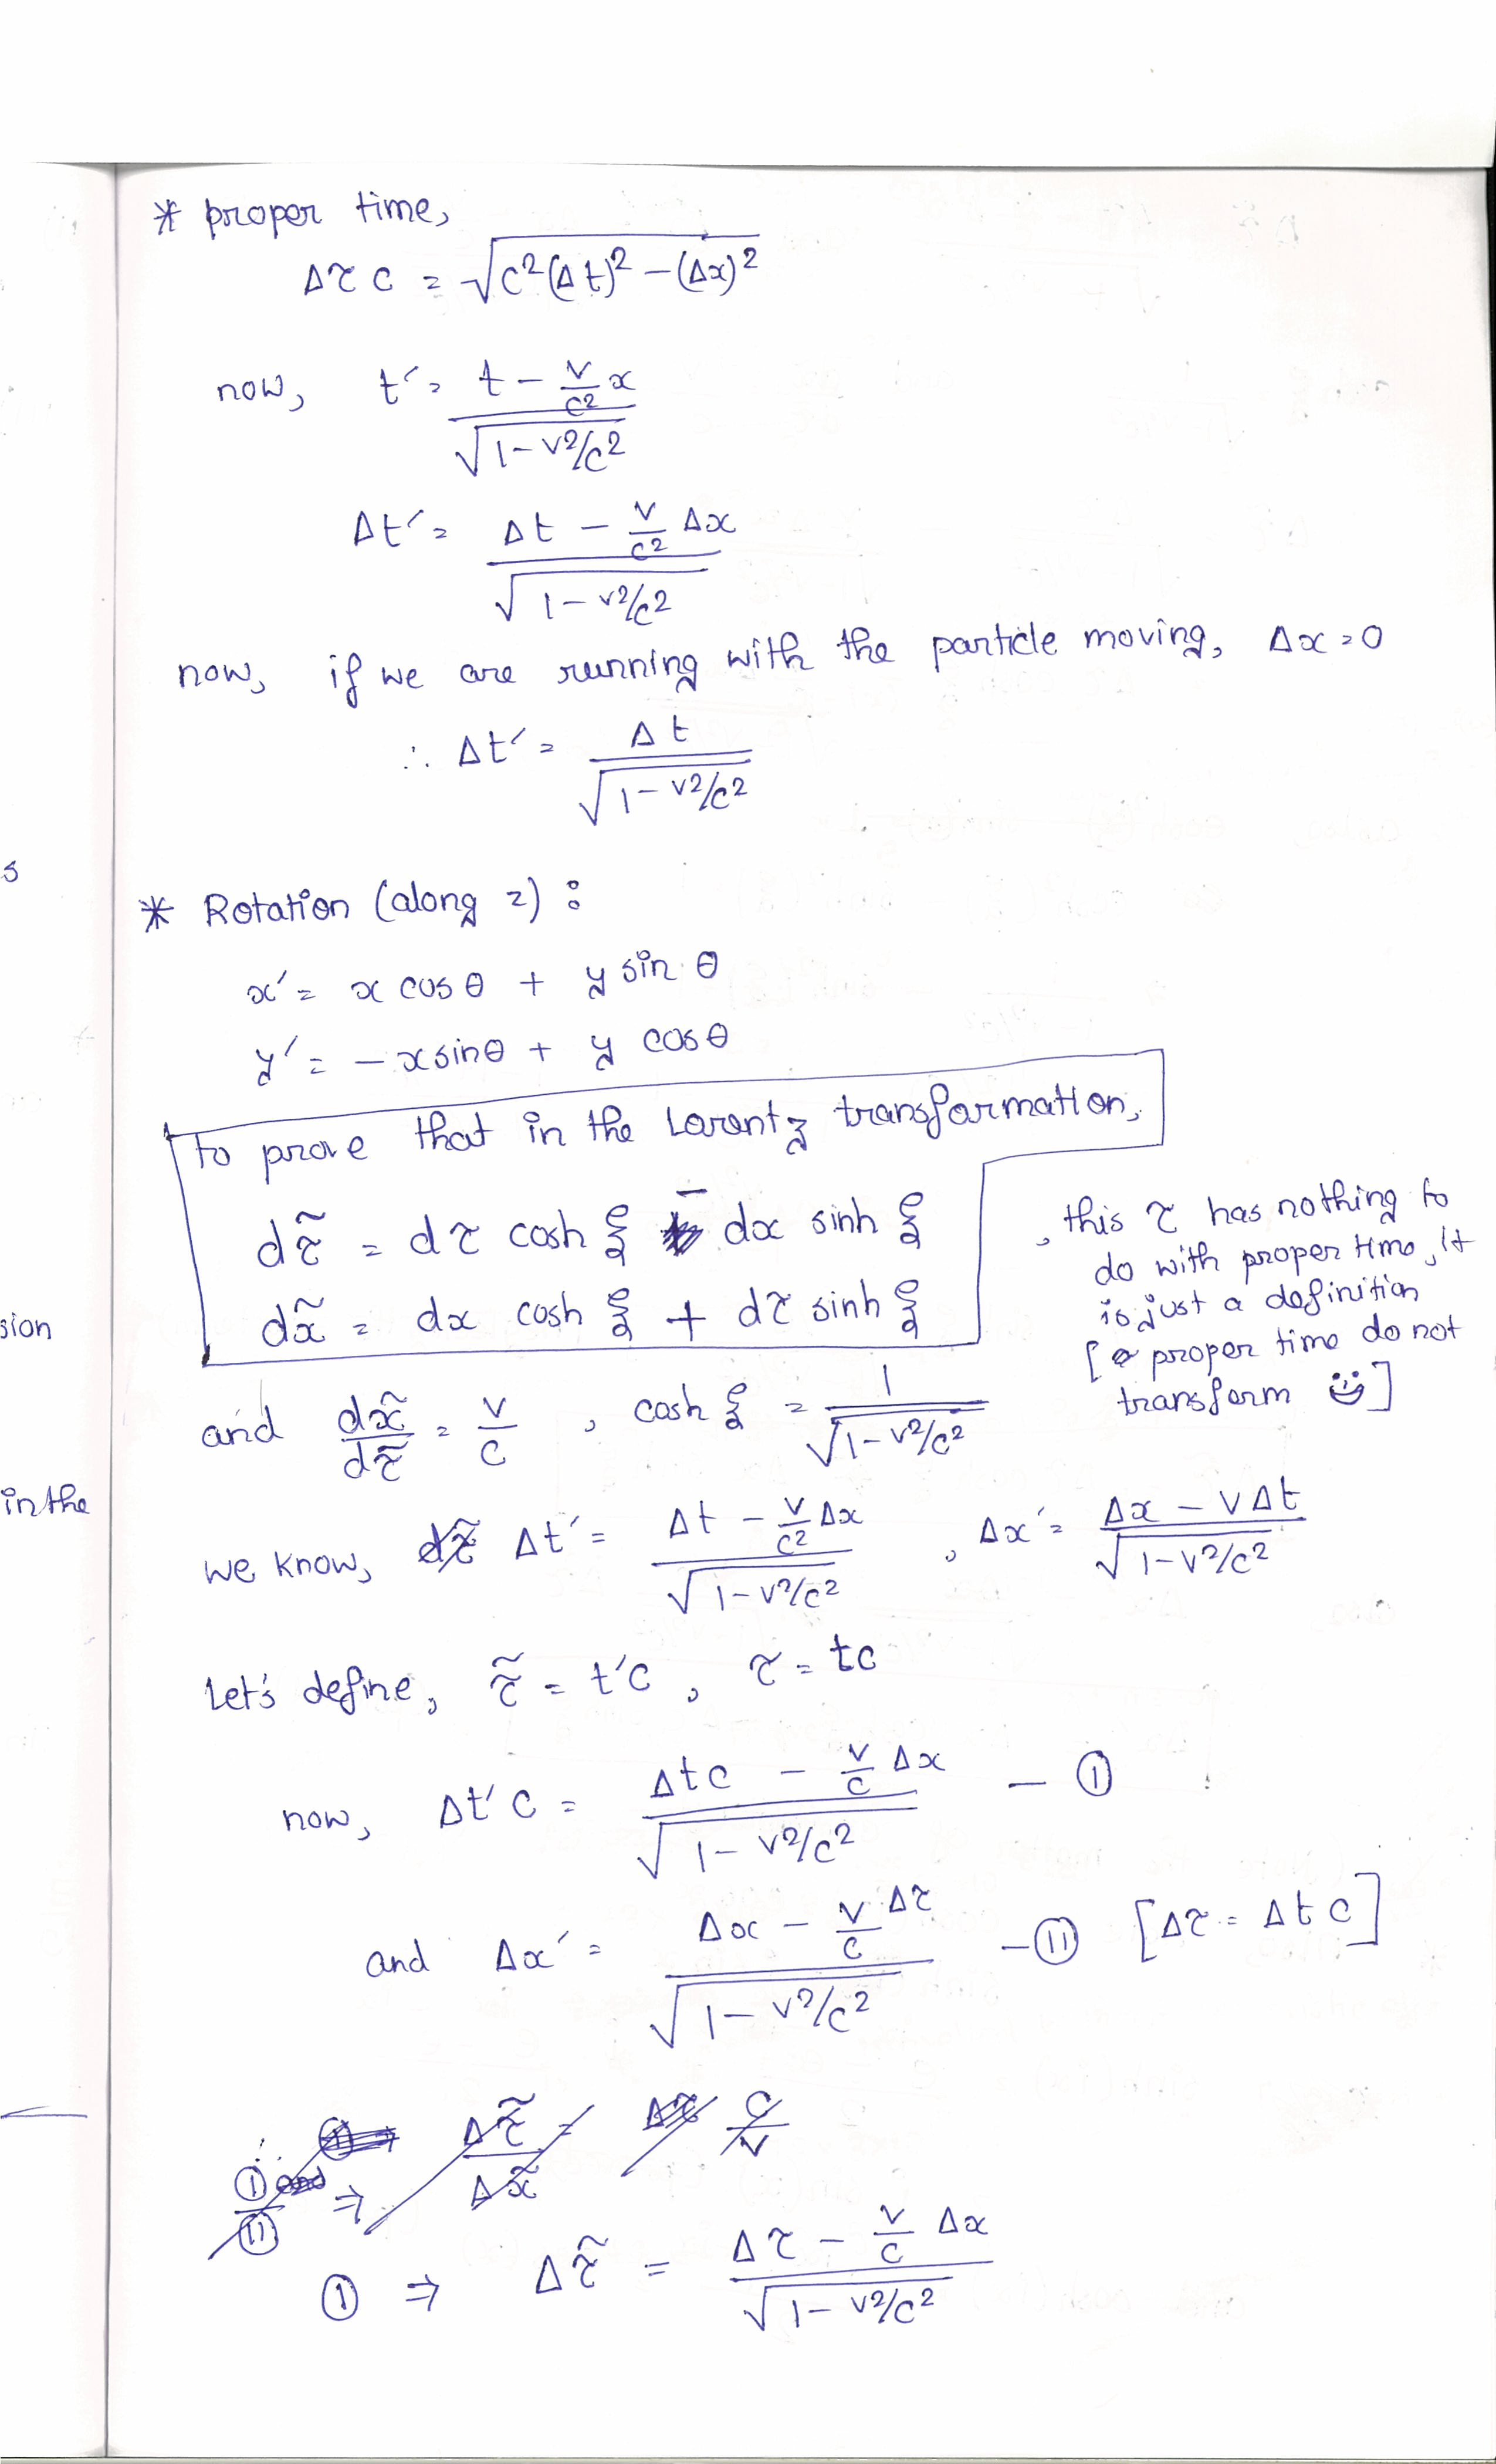 * proper time,
Δτ c = √(c²(Δt)² − (Δx)²)
now, t′ = (t − (v/c²) x) / √(1 − v²/c²)
Δt′ = (Δt − (v/c²) Δx) / √(1 − v²/c²)
now, if we are running with the particle moving, Δx = 0
∴ Δt′ = Δt / √(1 − v²/c²)
s
* Rotation (along z) :
x′ = x cos θ + y sin θ
y′ = − x sin θ + y cos θ
to prove that in the Lorentz transformation,
dτ̃ = dτ cosh ξ − dx sinh ξ
dx̃ = dx cosh ξ + dτ sinh ξ
, this τ has nothing to
do with proper time, it
is just a definition
[ proper time do not
transform ☺ ]
sion
and dx̃/dτ̃ = v/c , cosh ξ = 1 / √(1 − v²/c²)
in the
we know, dτ̃ Δt′ = (Δt − (v/c²) Δx) / √(1 − v²/c²) , Δx′ = (Δx − vΔt) / √(1 − v²/c²)
Let's define, τ̃ = t′c , τ = tc
now, Δt′c = (Δtc − (v/c) Δx) / √(1 − v²/c²) — ①
and Δx′ = (Δx − (v/c) Δτ) / √(1 − v²/c²) — ⑪ [Δτ = Δtc]
①/⑪ ⇒ Δτ̃/Δx̃ = Δτ c/v
① ⇒ Δτ̃ = (Δτ − (v/c) Δx) / √(1 − v²/c²)